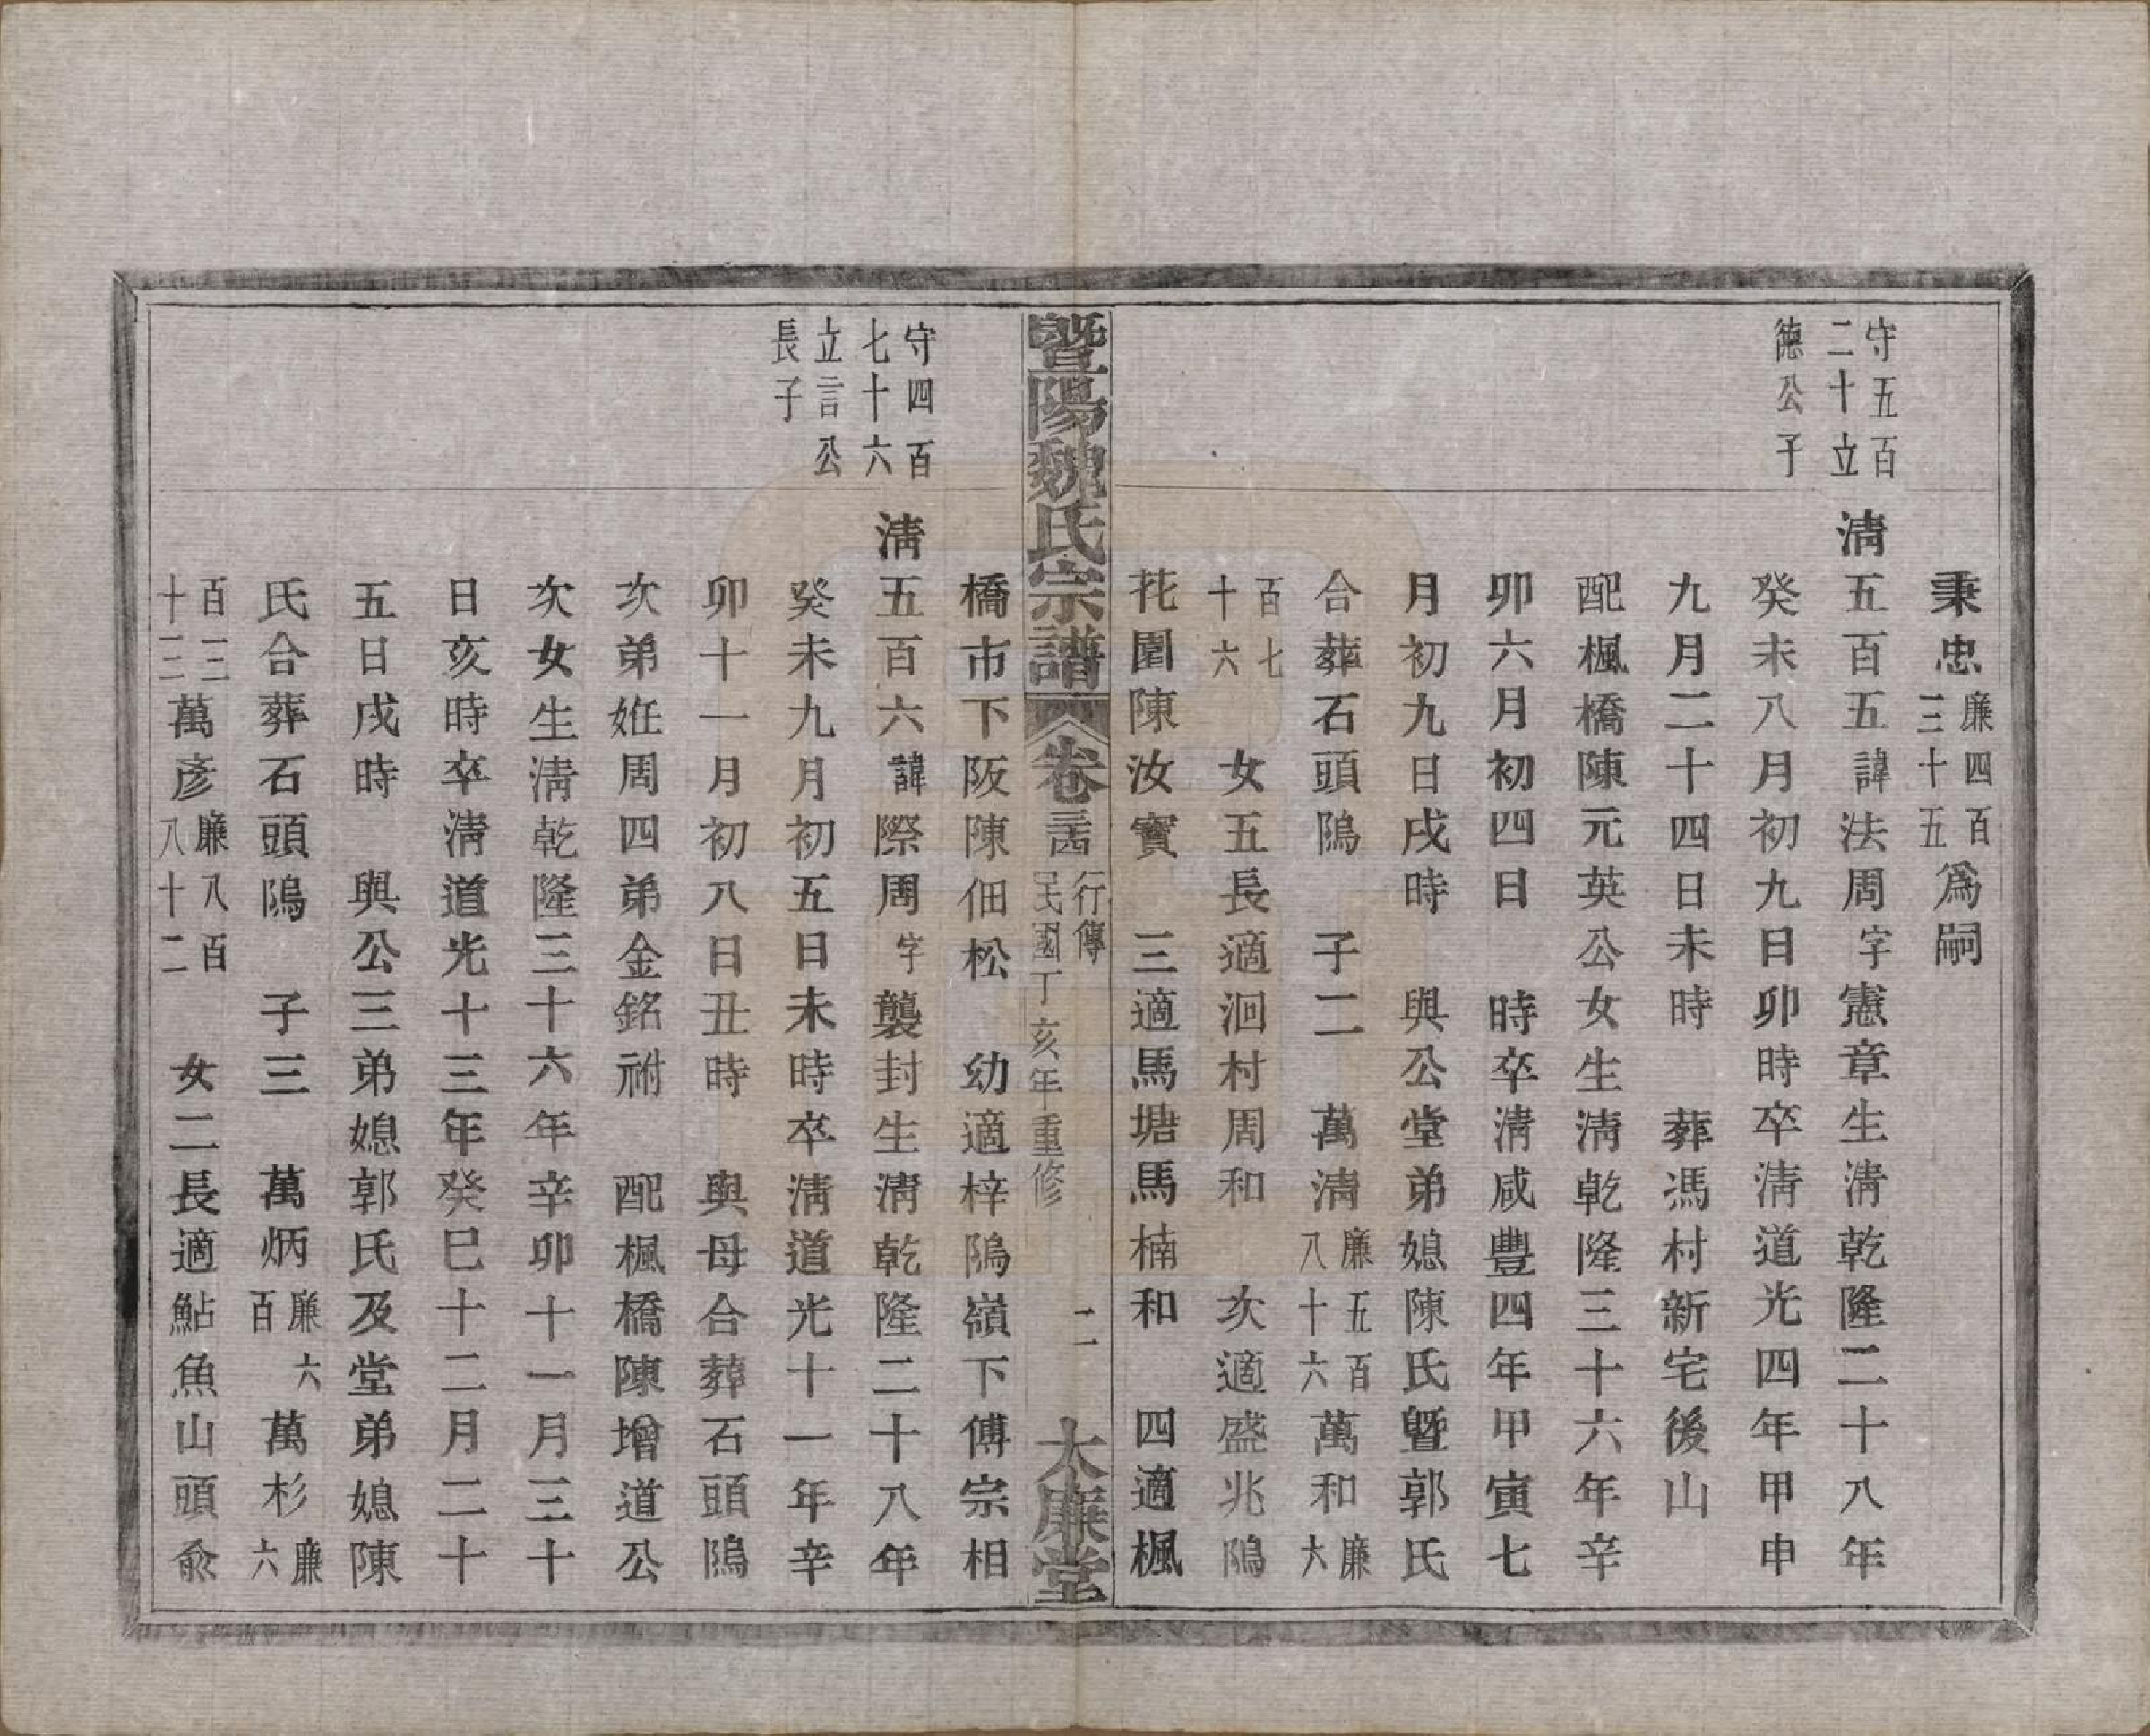 秉忠廉四百三十五爲嗣
守五百二十立德公子
淸五百五諱法周字憲章生淸乾隆二十八年
癸未八月初九日卯時卒淸道光四年甲申
九月二十四日未時　葬馮村新宅後山
配楓橋陳元英公女生淸乾隆三十六年辛
卯六月初四日　時卒淸咸豐四年甲寅七
月初九日戌時　與公堂弟媳陳氏曁郭氏
合葬石頭隖　子二　萬淸廉五百八十六萬和廉六
百七十六　女五長適洄村周和　次適盛兆隖
花園陳汝實　三適馬塘馬楠和　四適楓
曁陽魏氏宗譜　卷三四　行傳　民國丁亥年重修　二　大廉堂
橋市下阪陳佃松　幼適梓隖嶺下傅宗相
守四百七十六立言公長子
淸五百六諱際周字襲封生淸乾隆二十八年
癸未九月初五日未時卒淸道光十一年辛
卯十一月初八日丑時　與母合葬石頭隖
次弟姙周四弟金銘祔　配楓橋陳增道公
次女生淸乾隆三十六年辛卯十一月三十
日亥時卒淸道光十三年癸巳十二月二十
五日戌時　與公三弟媳郭氏及堂弟媳陳
氏合葬石頭隖　子三　萬炳廉六百萬杉廉六
百二十三萬彥廉八百八十二　女二長適鮎魚山頭兪